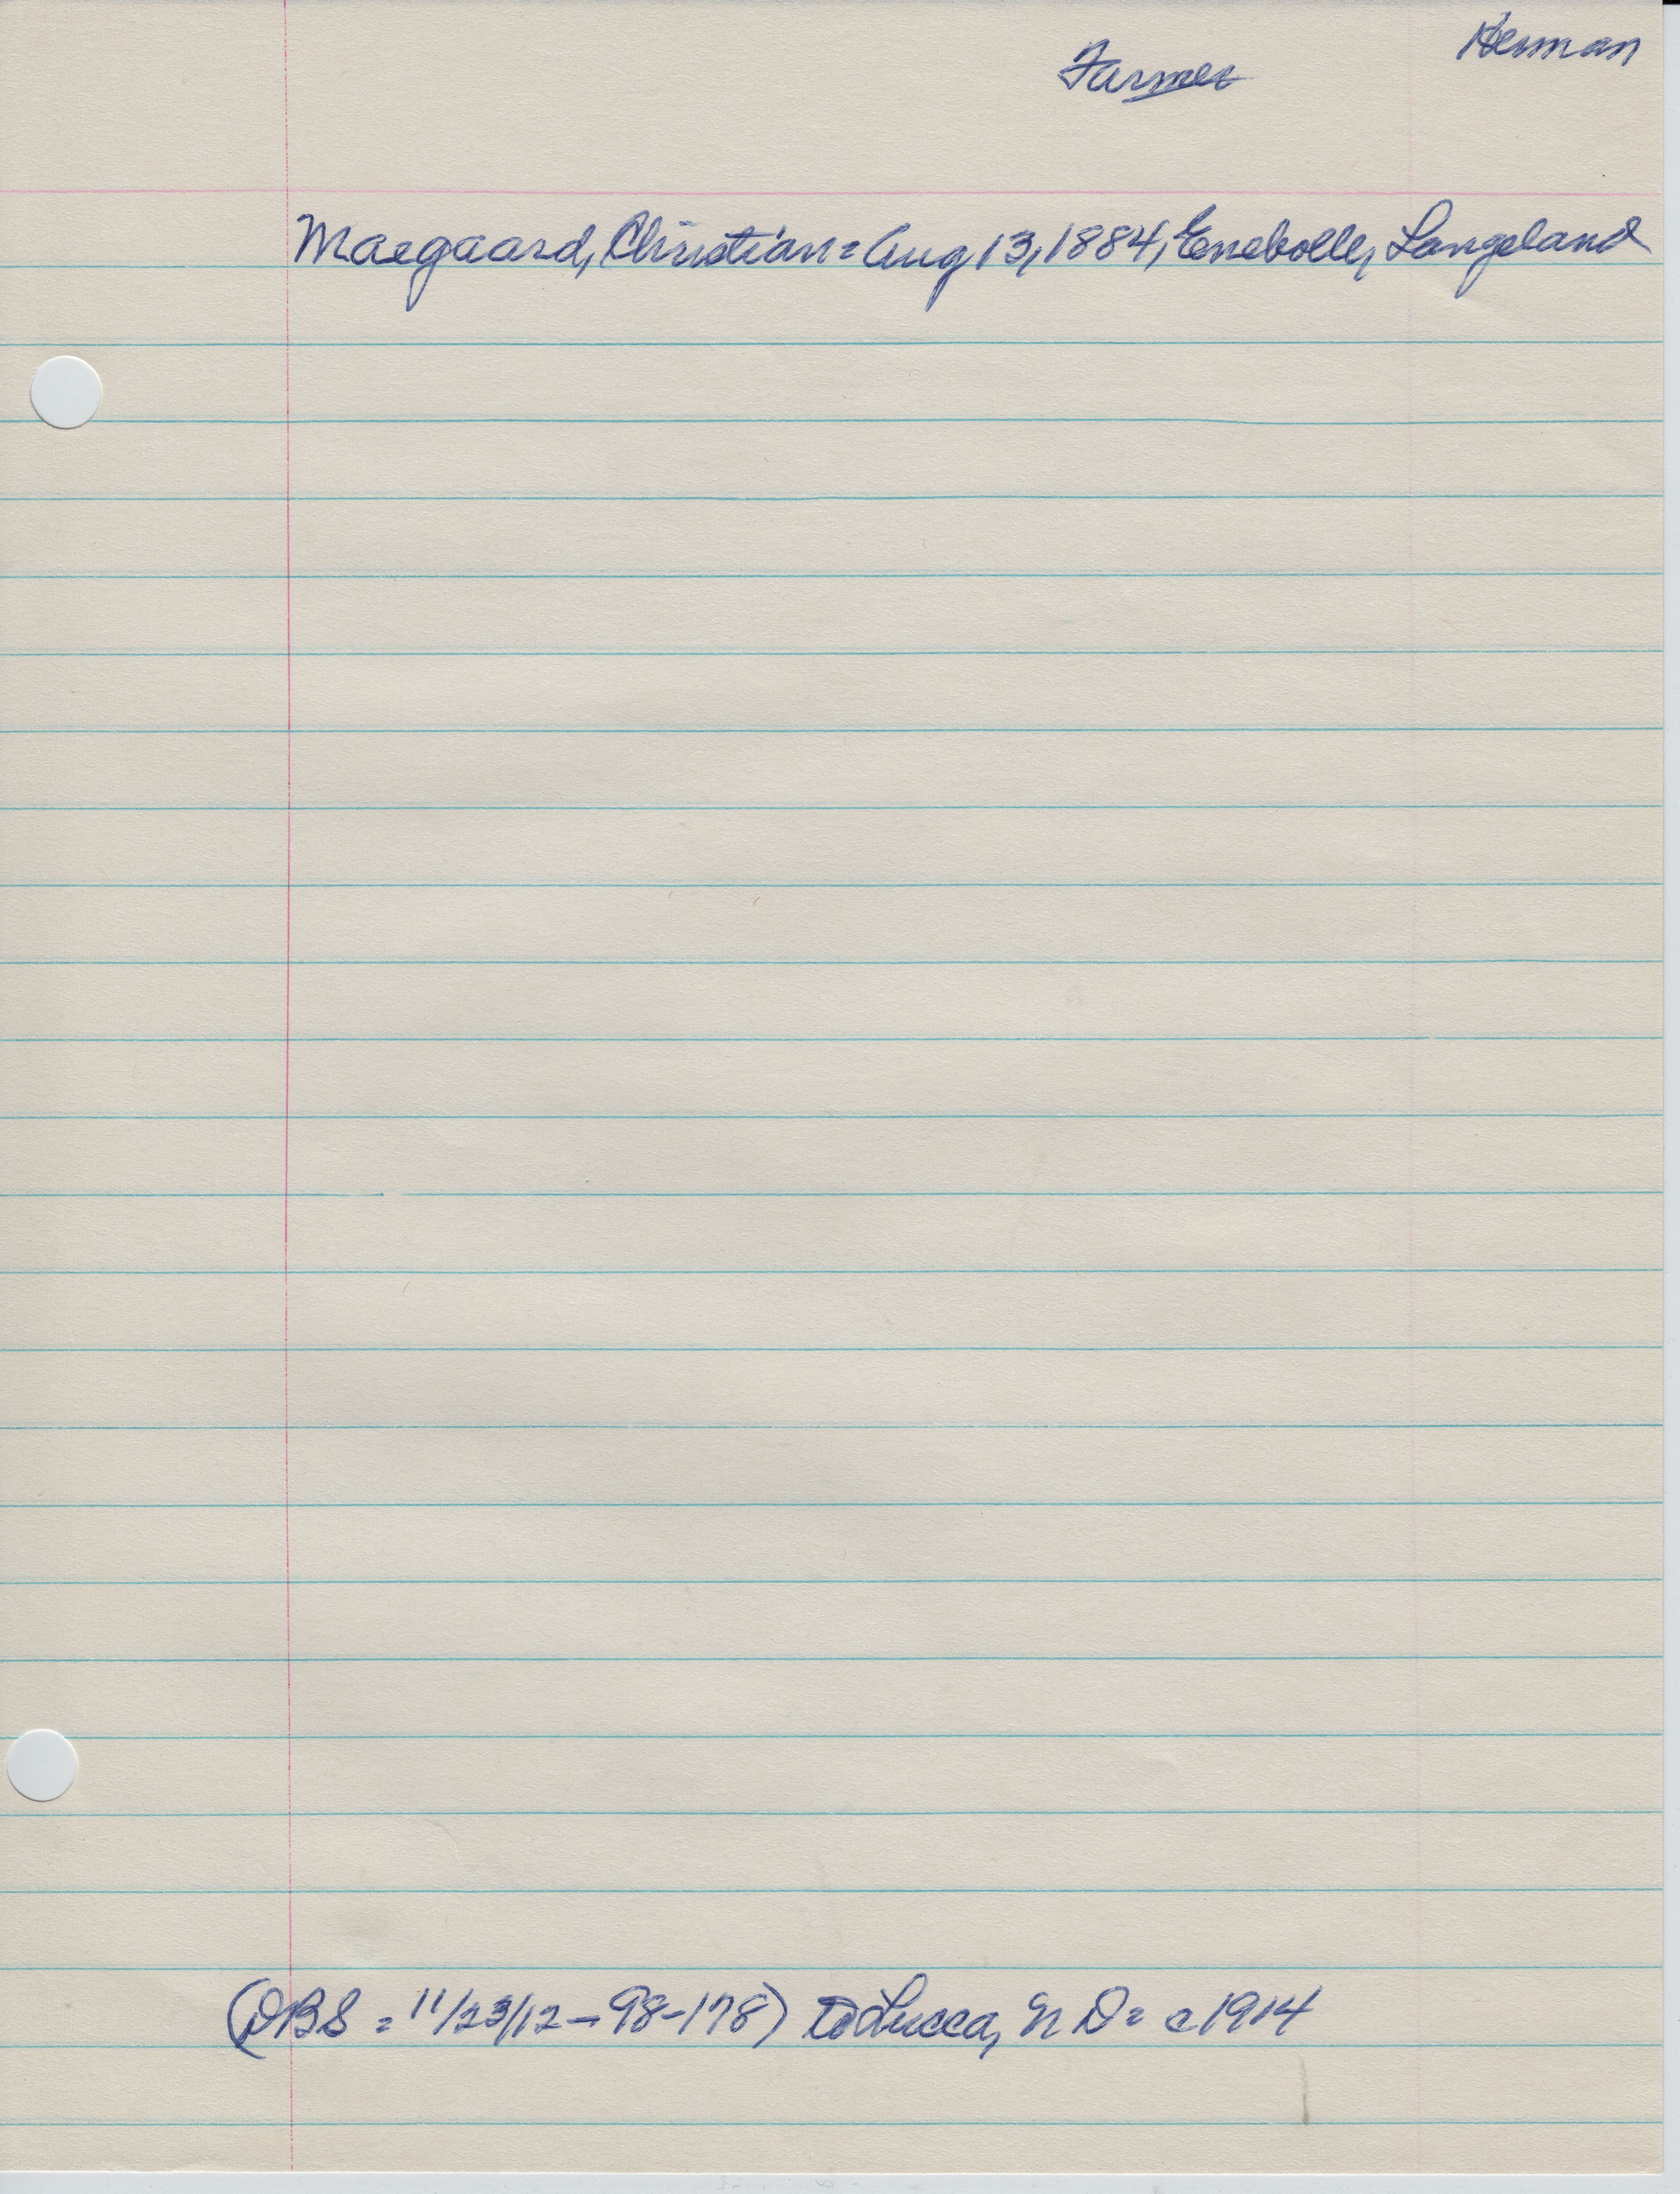 Herman
Farmer
Maegaard, Christian = Aug 13, 1884, Ennebolle, Langeland
(DBS = 11/23/12 - 98-178) to Lucca, N D = c 1914